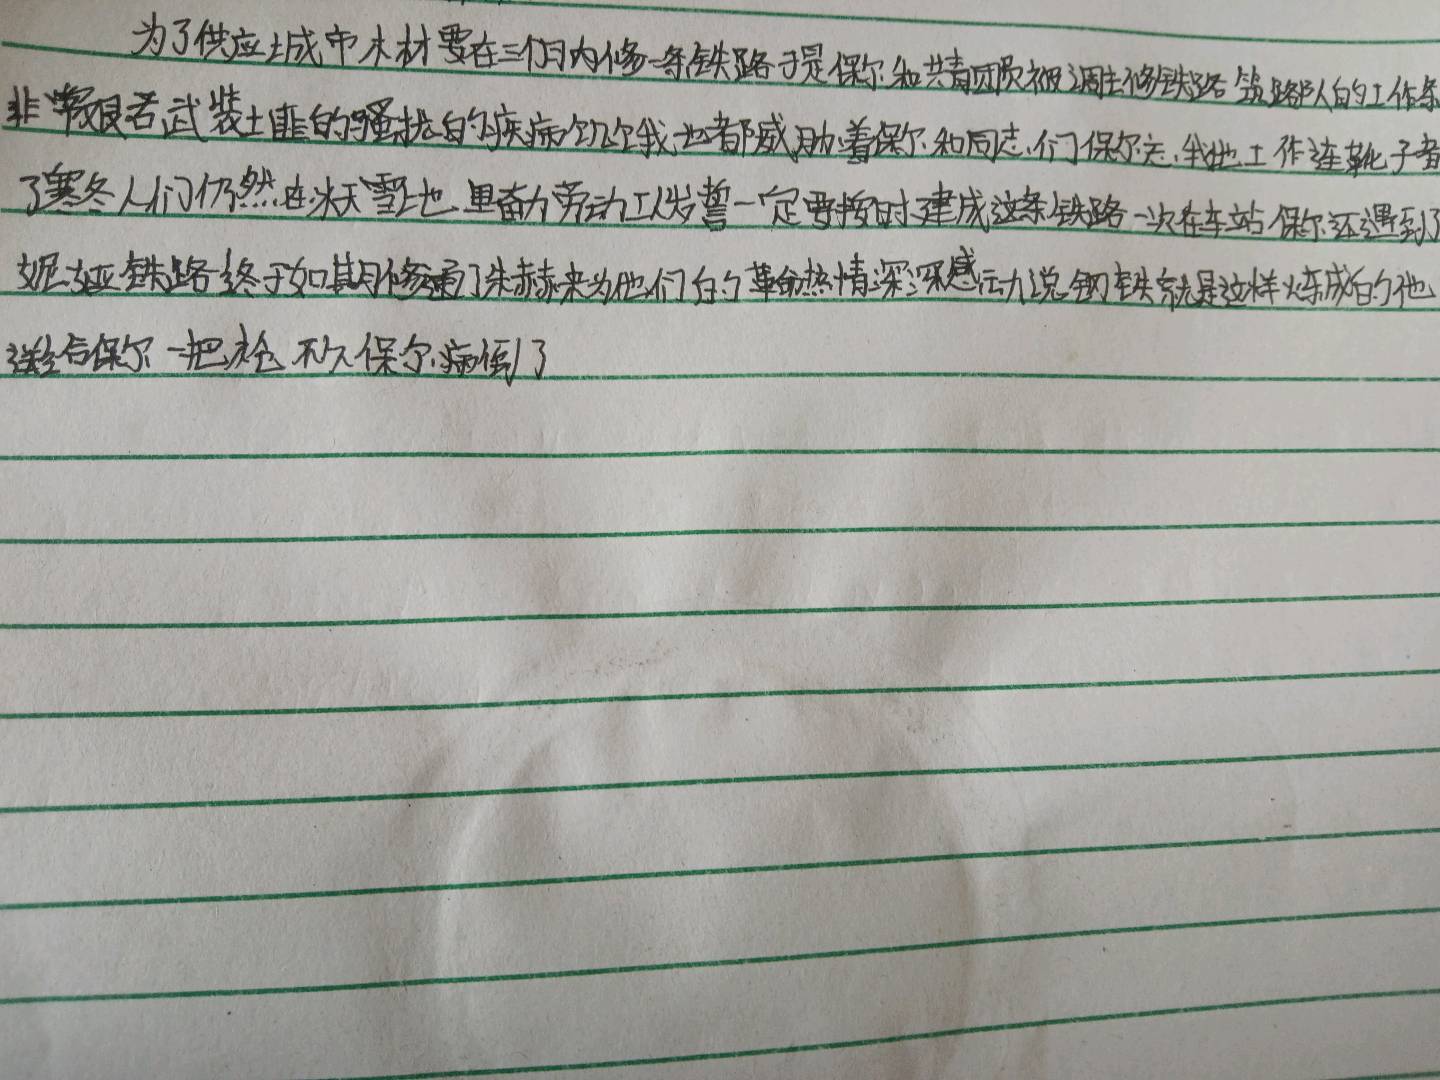 为了供应城市木材要在三个月内修一条铁路于是保尔和共青团员被调去修铁路筑路队的工作条
非常艰苦武装土匪的骚扰的疾病饥饿也都威胁着保尔和同志们保尔忘我地工作连靴子都
了寒冬人们仍然在冰天雪地里奋力劳动工人发誓一定要按时建成这条铁路一次在车站保尔还遇到了
妮娅铁路终于如期修通了朱赫来为他们的革命热情深深感动说钢铁就是这样炼成的他
送给保尔一把枪不久保尔病倒了